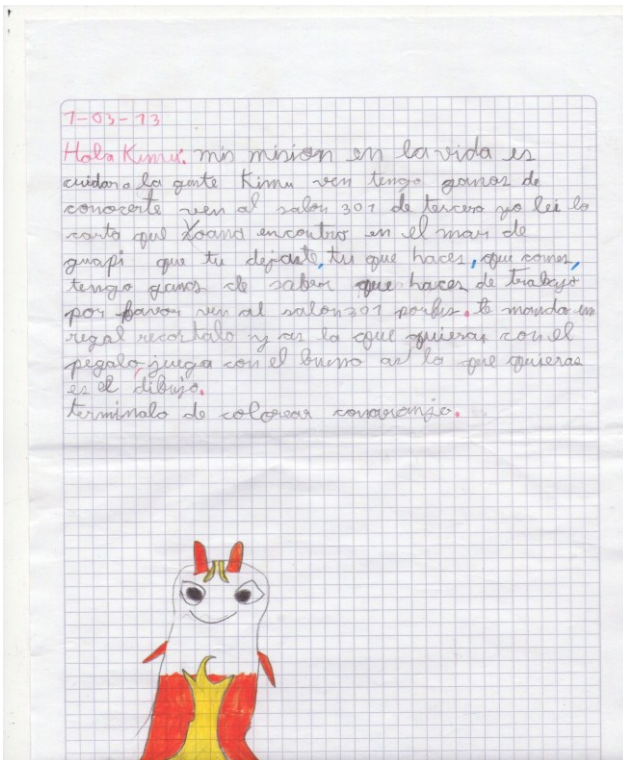 7-03-13
Hola Kimu. mis mision en la vida es
cuidar a la gente Kimu ven tengo ganas de
conocerte ven al salon 301 de tercero yo lei la
carta que Xoand encontro en el mar de
guapi que tu dejaste, tu que haces, que comes,
tengo ganas de saber que haces de trabajo
por favor ven al salon 301 porfis. te mando un
regal recortalo y as lo que quieras con el
pegalo, juega con el bueno as lo que quieras
es el dibujo.
terminalo de colorear connaranjo.